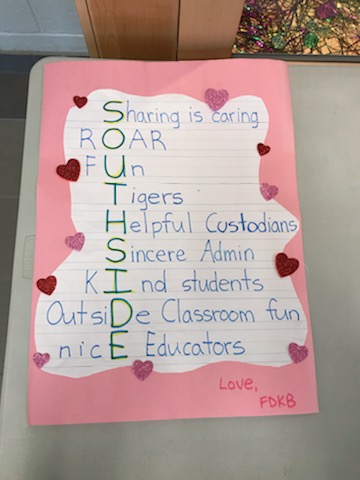 Sharing is caring
ROAR
Fun
Tigers
Helpful Custodians
Sincere Admin
KInd students
OutsiDe Classroom fun
nice Educators
Love,
FDKB